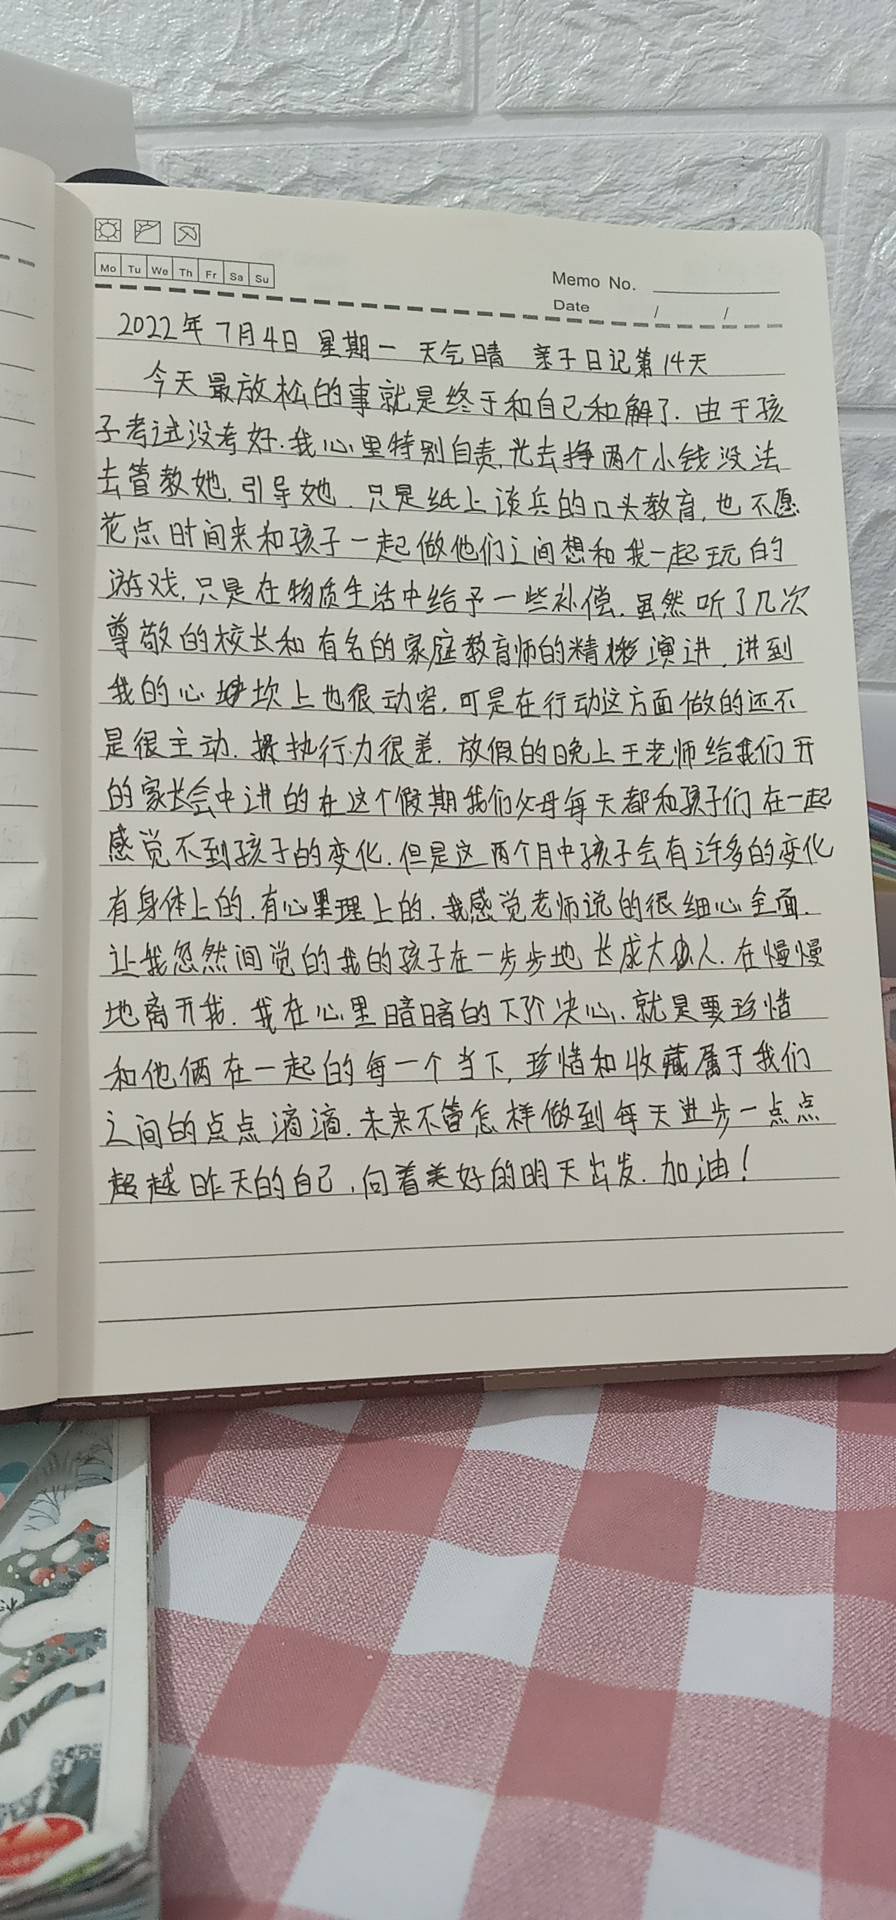 Mo Tu We Th Fr Sa Su
Memo No.
Date / /
2022年7月4日 星期一 天气晴 亲子日记第14天
今天最放松的事就是终于和自己和解了.由于孩
子考试没考好.我心里特别自责,光去挣两个小钱没法
去管教她,引导她.只是纸上谈兵的口头教育,也不愿
花点时间来和孩子一起做他们之间想和我一起玩的
游戏,只是在物质生活中给予一些补偿.虽然听了几次
尊敬的校长和有名的家庭教育师的精彩演讲,讲到
我的心坎上也很动容,可是在行动这方面做的还不
是很主动.执行力很差.放假的晚上王老师给我们开
的家长会中讲的在这个假期我们父母每天都和孩子们在一起
感觉不到孩子的变化.但是这两个月中孩子会有许多的变化
有身体上的.有心理上的.我感觉老师说的很细心全面.
让我忽然间觉的我的孩子在一步步地长成大人.在慢慢
地离开我.我在心里暗暗的下决心.就是要珍惜
和他俩在一起的每一个当下,珍惜和收藏属于我们
之间的点点滴滴.未来不管怎样做到每天进步一点点
超越昨天的自己,向着美好的明天出发.加油!